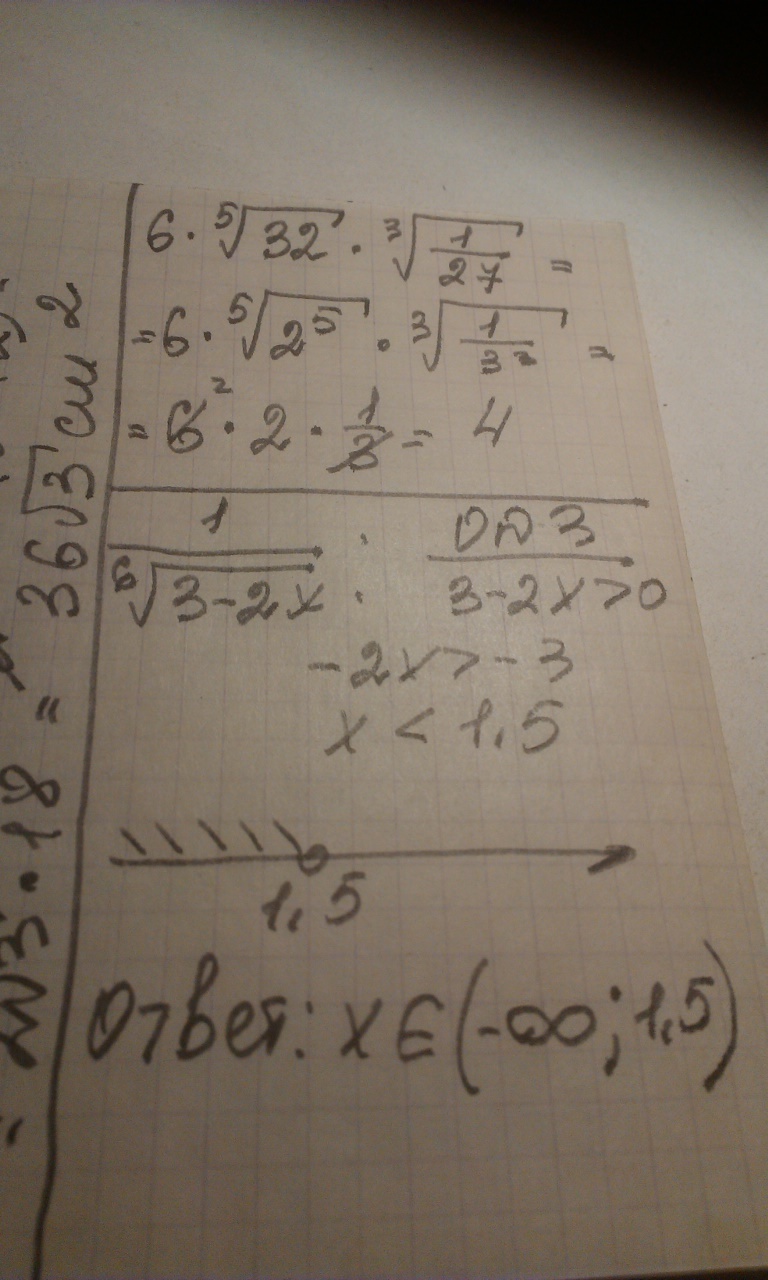 6 · ⁵√32 · ³√(1/27) =
= 6 · ⁵√2⁵ · ³√(1/3³) =
= 6² · 2 · 1/3 = 4
1/⁶√(3-2x) : ОДЗ
3-2x>0
-2x>-3
x < 1,5
1,5
Ответ: x∈(-∞; 1,5)
· 18 = 36√3 см 2